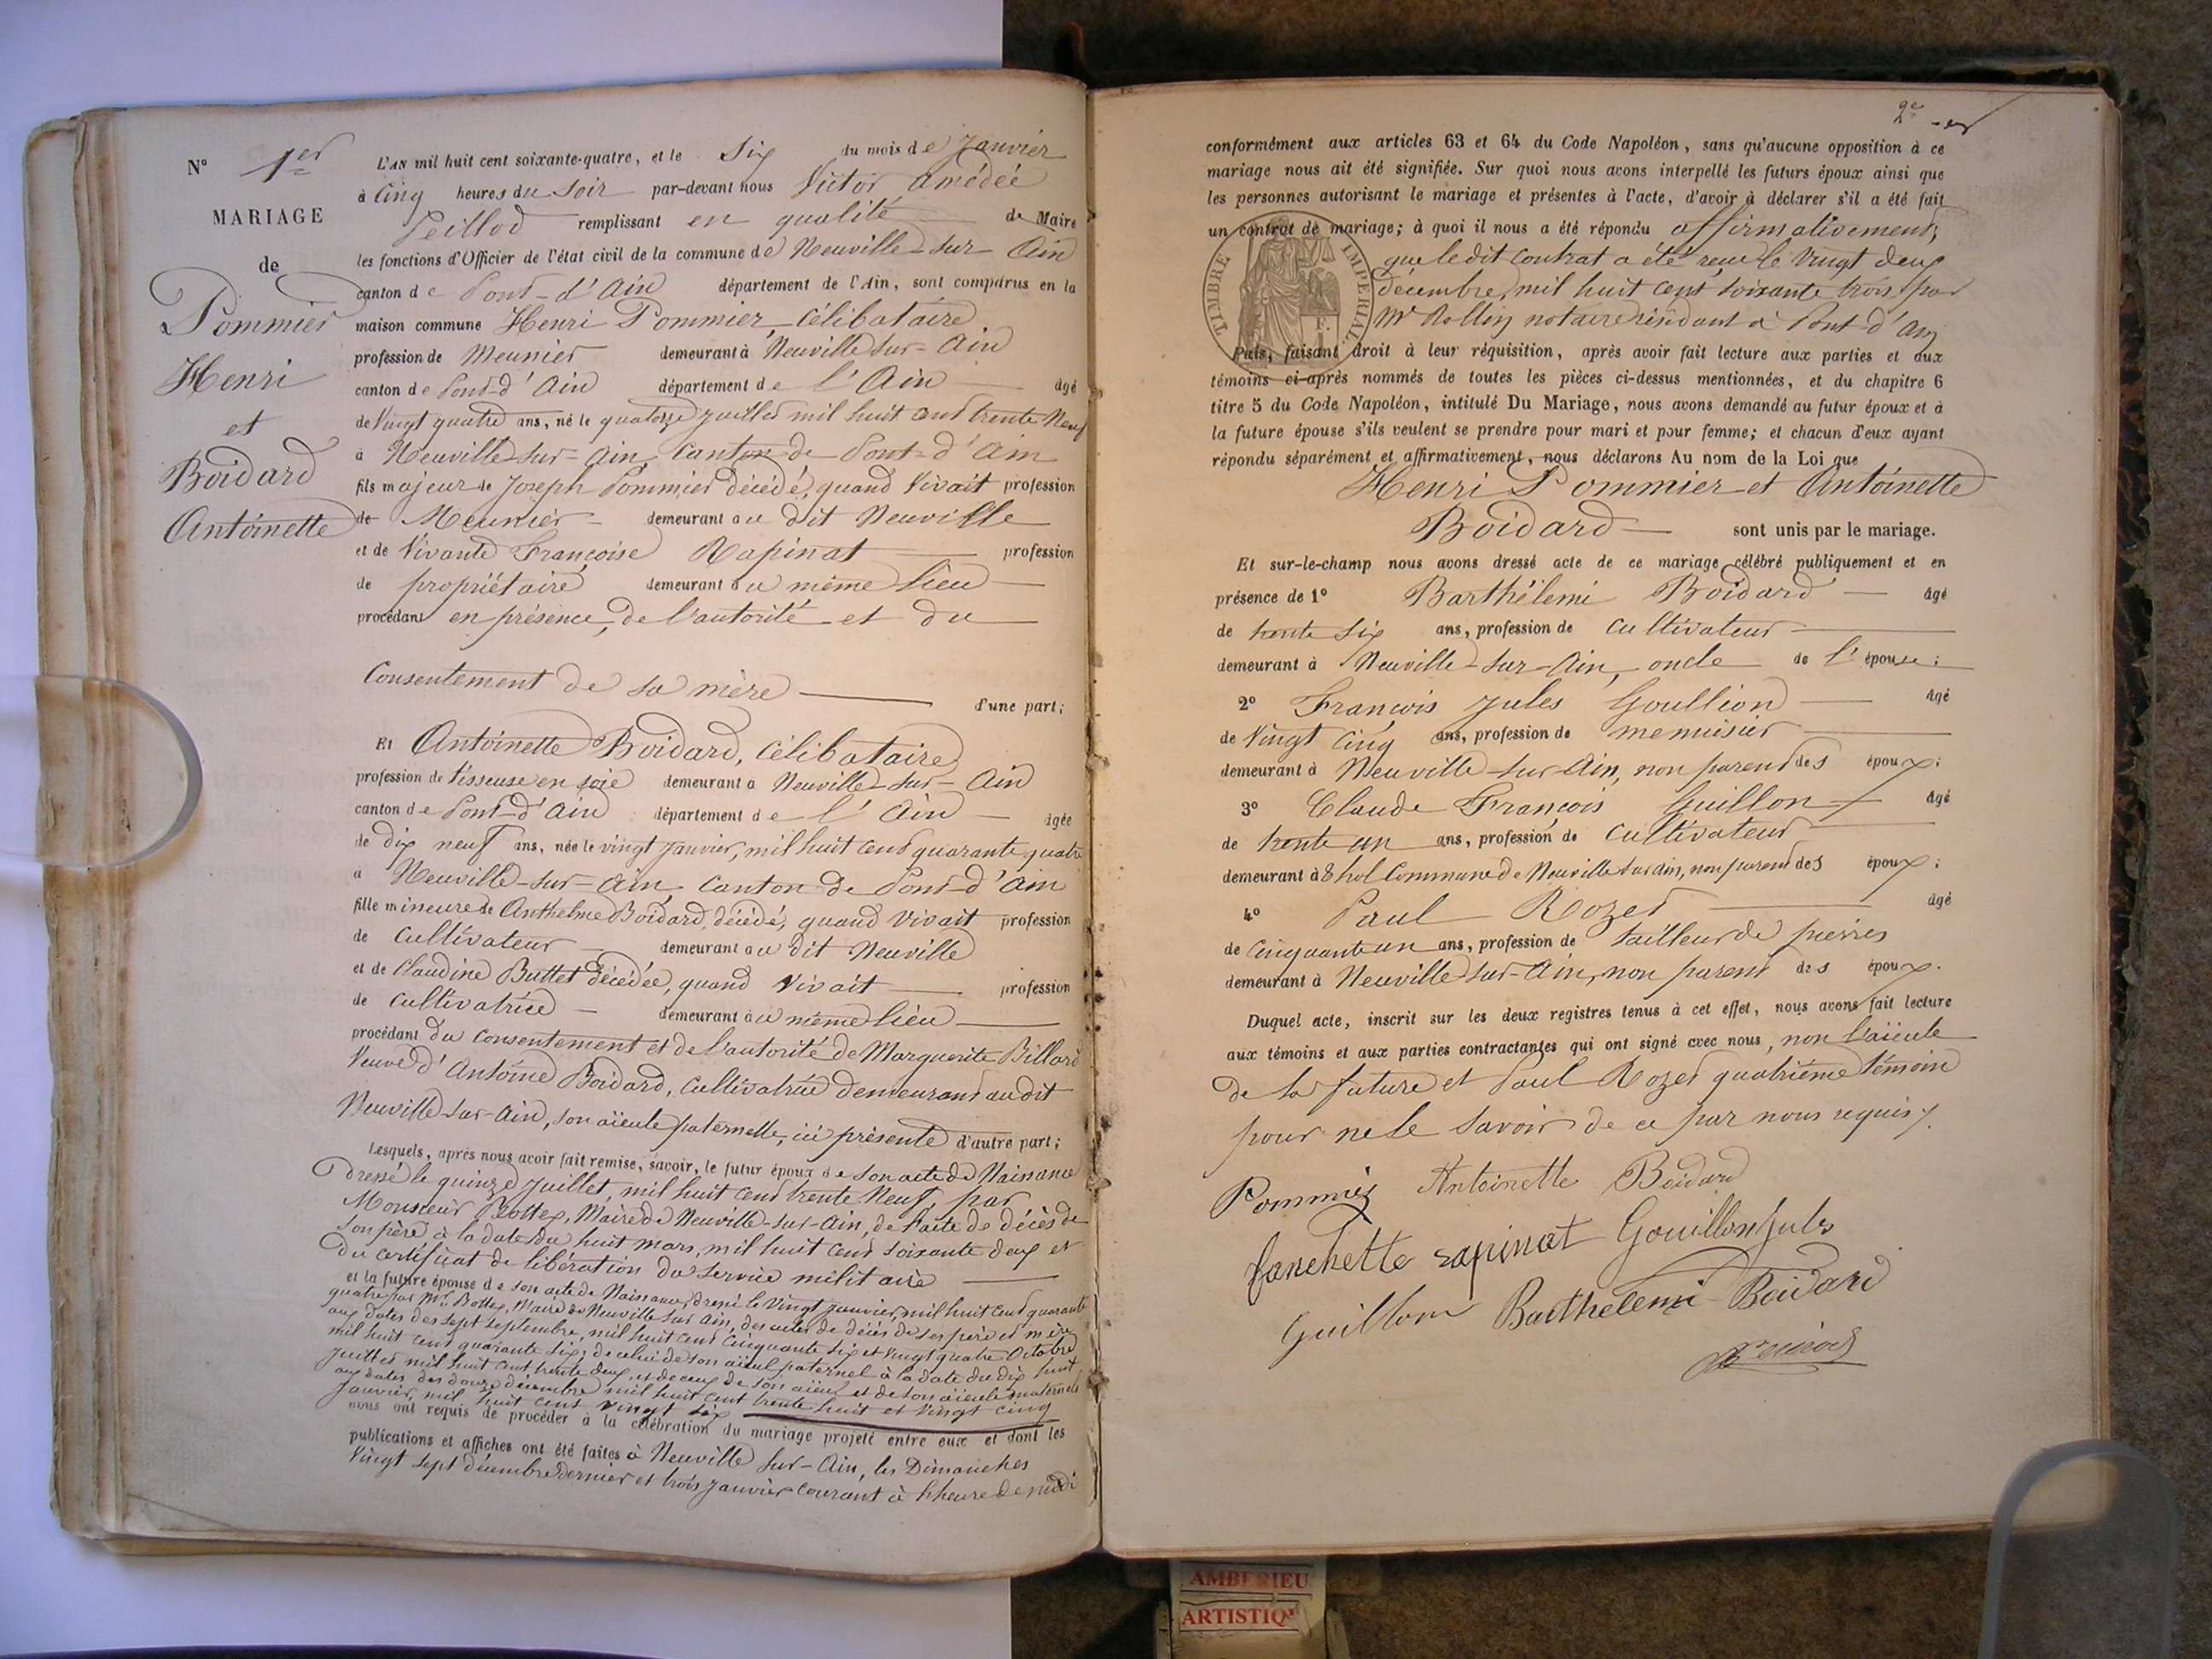 N° 1er
MARIAGE
de
Pommier
Henri
et
Boidard
Antoinette
L'AN mil huit cent soixante-quatre, et le six du mois de Janvier
à cinq heures du soir par-devant nous Victor Amédée
Peillod remplissant en qualité de Maire
les fonctions d'Officier de l'état civil de la commune de Neuville-sur-Ain
canton de Pont-d'Ain département de l'Ain, sont comparus en la
maison commune Henri Pommier, célibataire
profession de Meunier demeurant à Neuville-sur-Ain
canton de Pont-d'Ain département de l'Ain âgé
de vingt quatre ans, né le quatorze juillet mil huit cent trente neuf
à Neuville-sur-Ain, Canton de Pont-d'Ain
fils majeur de Joseph Pommier décédé, quand vivait profession
de Meunier demeurant au dit Neuville
et de vivante Françoise Rapinat profession
de propriétaire demeurant au même lieu
procédant en présence, de l'autorité et du
Consentement de sa mère
d'une part;
Et Antoinette Boidard, célibataire
profession de tisseuse en soie demeurant à Neuville-sur-Ain
canton de Pont-d'Ain département de l'Ain âgée
de dix neuf ans, née le vingt janvier, mil huit cent quarante quatre
à Neuville-sur-Ain Canton de Pont-d'Ain
fille mineure de Anthelme Boidard, décédé, quand vivait profession
de cultivateur demeurant au dit Neuville
et de Claudine Buttet décédée, quand vivait profession
de cultivatrice demeurant au même lieu
procédant du consentement et de l'autorité de Marguerite Billard
veuve d'Antoine Boidard, cultivatrice demeurant au dit
Neuville-sur-Ain, son aïeule paternelle, ici présente d'autre part;
Lesquels, après nous avoir fait remise, savoir, le futur époux de son acte de Naissance
dressé le quinze juillet, mil huit cent trente neuf, par
Monsieur Bottex, Maire de Neuville-sur-Ain, de l'acte de décès de
son père à la date du huit mars, mil huit cent soixante deux et
du certificat de libération du service militaire
et la future épouse de son acte de Naissance dressé le vingt janvier, mil huit cent quarante
quatre par Mr Bottex, Maire de Neuville sur Ain, des actes de décès de ses père et mère
aux dates des sept septembre, mil huit cent cinquante six et vingt quatre Octobre
mil huit cent quarante six; de celui de son aïeul paternel à la date du dix huit
juillet mil huit cent trente deux, et de ceux de son aïeul et de son aïeule maternels
aux dates des douze décembre mil huit cent trente huit et vingt cinq
janvier, mil huit cent vingt six
nous ont requis de procéder à la célébration du mariage projeté entre eux et dont les
publications et affiches ont été faites à Neuville sur-Ain, les Dimanches
vingt sept décembre dernier et trois janvier courant à l'heure de midi
2e
conformément aux articles 63 et 64 du Code Napoléon, sans qu'aucune opposition à ce
mariage nous ait été signifiée. Sur quoi nous avons interpellé les futurs époux ainsi que
les personnes autorisant le mariage et présentes à l'acte, d'avoir à déclarer s'il a été fait
un contrat de mariage; à quoi il nous a été répondu affirmativement,
que le dit contrat a été reçu le vingt deux
décembre, mil huit cent soixante trois, par
Mr Rollin notaire résidant à Pont-d'Ain
TIMBRE IMPERIAL
Puis, faisant droit à leur réquisition, après avoir fait lecture aux parties et aux
témoins ci-après nommés de toutes les pièces ci-dessus mentionnées, et du chapitre 6
titre 5 du Code Napoléon, intitulé Du Mariage, nous avons demandé au futur époux et à
la future épouse s'ils veulent se prendre pour mari et pour femme; et chacun d'eux ayant
répondu séparément et affirmativement, nous déclarons Au nom de la Loi que
Henri Pommier et Antoinette
Boidard sont unis par le mariage.
Et sur-le-champ nous avons dressé acte de ce mariage célébré publiquement et en
présence de 1° Barthélemi Boidard âgé
de trente six ans, profession de cultivateur
demeurant à Neuville-sur-Ain, oncle de l'épouse;
2° François Jules Goullion âgé
de vingt cinq ans, profession de menuisier
demeurant à Neuville-sur-Ain, non parent des époux;
3° Claude François Guillon âgé
de trente un ans, profession de cultivateur
demeurant à Thol Commune de Neuville sur ain, non parent des époux;
4° Paul Rozet âgé
de cinquante un ans, profession de tailleur de pierres
demeurant à Neuville-sur-Ain, non parent des époux.
Duquel acte, inscrit sur les deux registres tenus à cet effet, nous avons fait lecture
aux témoins et aux parties contractantes qui ont signé avec nous, non l'aïeule
de la future et Paul Rozet quatrième témoin
pour ne le savoir de ce par nous requis.
Pommier Antoinette Boidard
fanchette rapinat Gouillon Jules
Guillon Barthelemi Boidard
AMBERIEU
ARTISTIQ